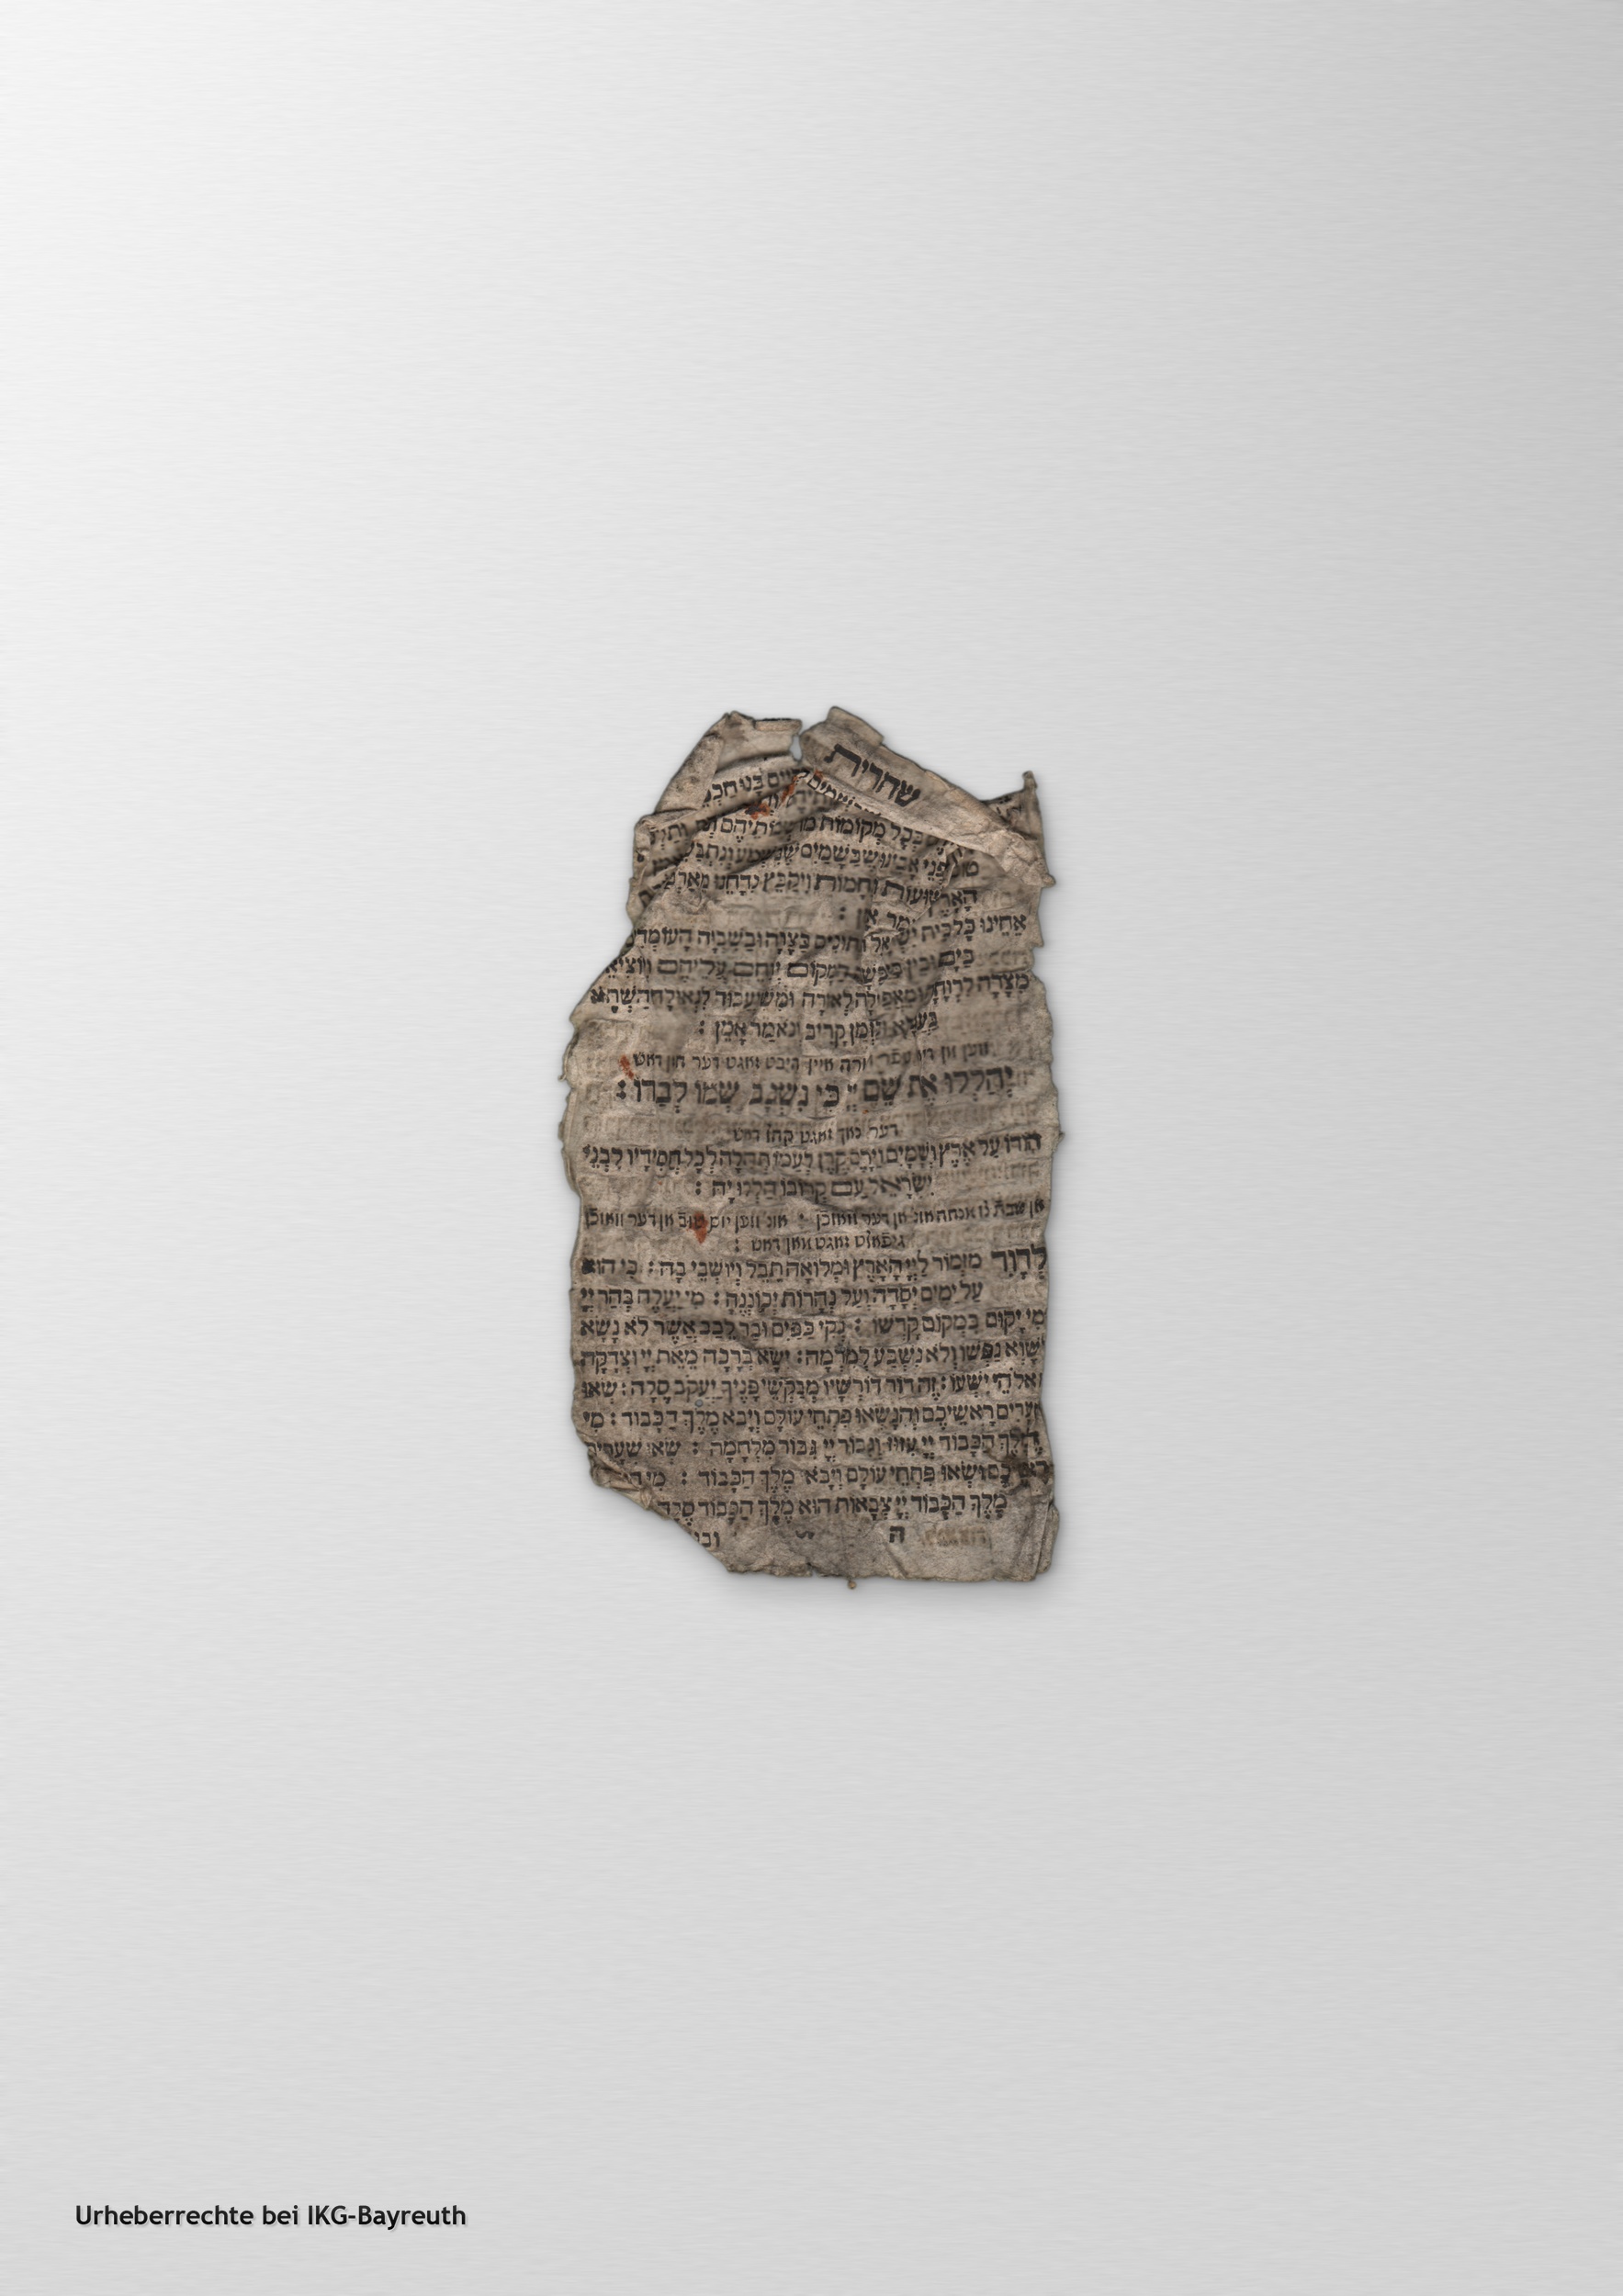 שחרית
בכל מקומות
אבינו שבשמים
הארץ ישועות ונחמות ויקבץ נדחינו מארבע
אמן :
אַחֵינוּ כָּל בֵּית יִשְׂרָאֵל הנתונים בַּצָרָה ובַשִׁבְיָה הָעוֹמְדִים
בַּיָם ובין ביבשה המקום ירחם עליהם ויוציאם
מִצָרָה לִרְוָחָה ומאפילה לאורה ומשעבוד לגאולה השתא
בעגלא ובזמן קריב ונאמר אמן :
תורה איין היבט זאגט דער חזן דאש
יְהַלְלוּ אֶת שֵׁם יְיָ כִּי נִשְׂגָב שְׁמוֹ לְבַדּוֹ :
דער נאך זאגט קהל דאש
הוֹדוֹ עַל אֶרֶץ וְשָׁמָיִם וַיָרֶם קֶרֶן לְעַמוֹ תְהִלָה לְכָל חֲסִידָיו לִבְנֵי
יִשְׂרָאֵל עַם קְרוֹבוֹ הַלְלוּ יָהּ :
אן שבת צו מנחה אונ' אן דער וואוכן : אונ' ווען יום טוב אן דער וואוכן
גיפאלט זאגט מאן דאש :
לְדָוִד מִזְמוֹר לַיְיָ הָאָרֶץ וּמְלוֹאָהּ תֵּבֵל וְיוֹשְׁבֵי בָהּ : כִּי הוּא
עַל יַמִים יְסָדָהּ וְעַל נְהָרוֹת יְכוֹנְנֶהָ : מִי יַעֲלֶה בְּהַר יְיָ
מִי יָקוּם בִּמְקוֹם קָדְשׁוֹ : נְקִי כַפַּיִם וּבַר לֵבָב אֲשֶׁר לֹא נָשָׂא
לַשָׁוְא נַפְשׁוֹ וְלֹא נִשְׁבַּע לְמִרְמָה : יִשָׂא בְרָכָה מֵאֵת יְיָ וּצְדָקָה
מֵאֱלֹהֵי יִשְׁעוֹ : זֶה דוֹר דוֹרְשָׁיו מְבַקְשֵׁי פָנֶיךָ יַעֲקֹב סֶלָה : שְׂאוּ
שְׁעָרִים רָאשֵׁיכֶם וְהִנָשְׂאוּ פִּתְחֵי עוֹלָם וְיָבֹא מֶלֶךְ הַכָּבוֹד : מִי
זֶה מֶלֶךְ הַכָּבוֹד יְיָ עִזוּז וְגִבּוֹר יְיָ גִבּוֹר מִלְחָמָה : שְׂאוּ שְׁעָרִים
רָאשֵׁיכֶם וּשְׂאוּ פִּתְחֵי עוֹלָם וְיָבֹא מֶלֶךְ הַכָּבוֹד : מִי
מֶלֶךְ הַכָּבוֹד יְיָ צְבָאוֹת הוּא מֶלֶךְ הַכָּבוֹד סֶלָה
ה
Urheberrechte bei IKG-Bayreuth